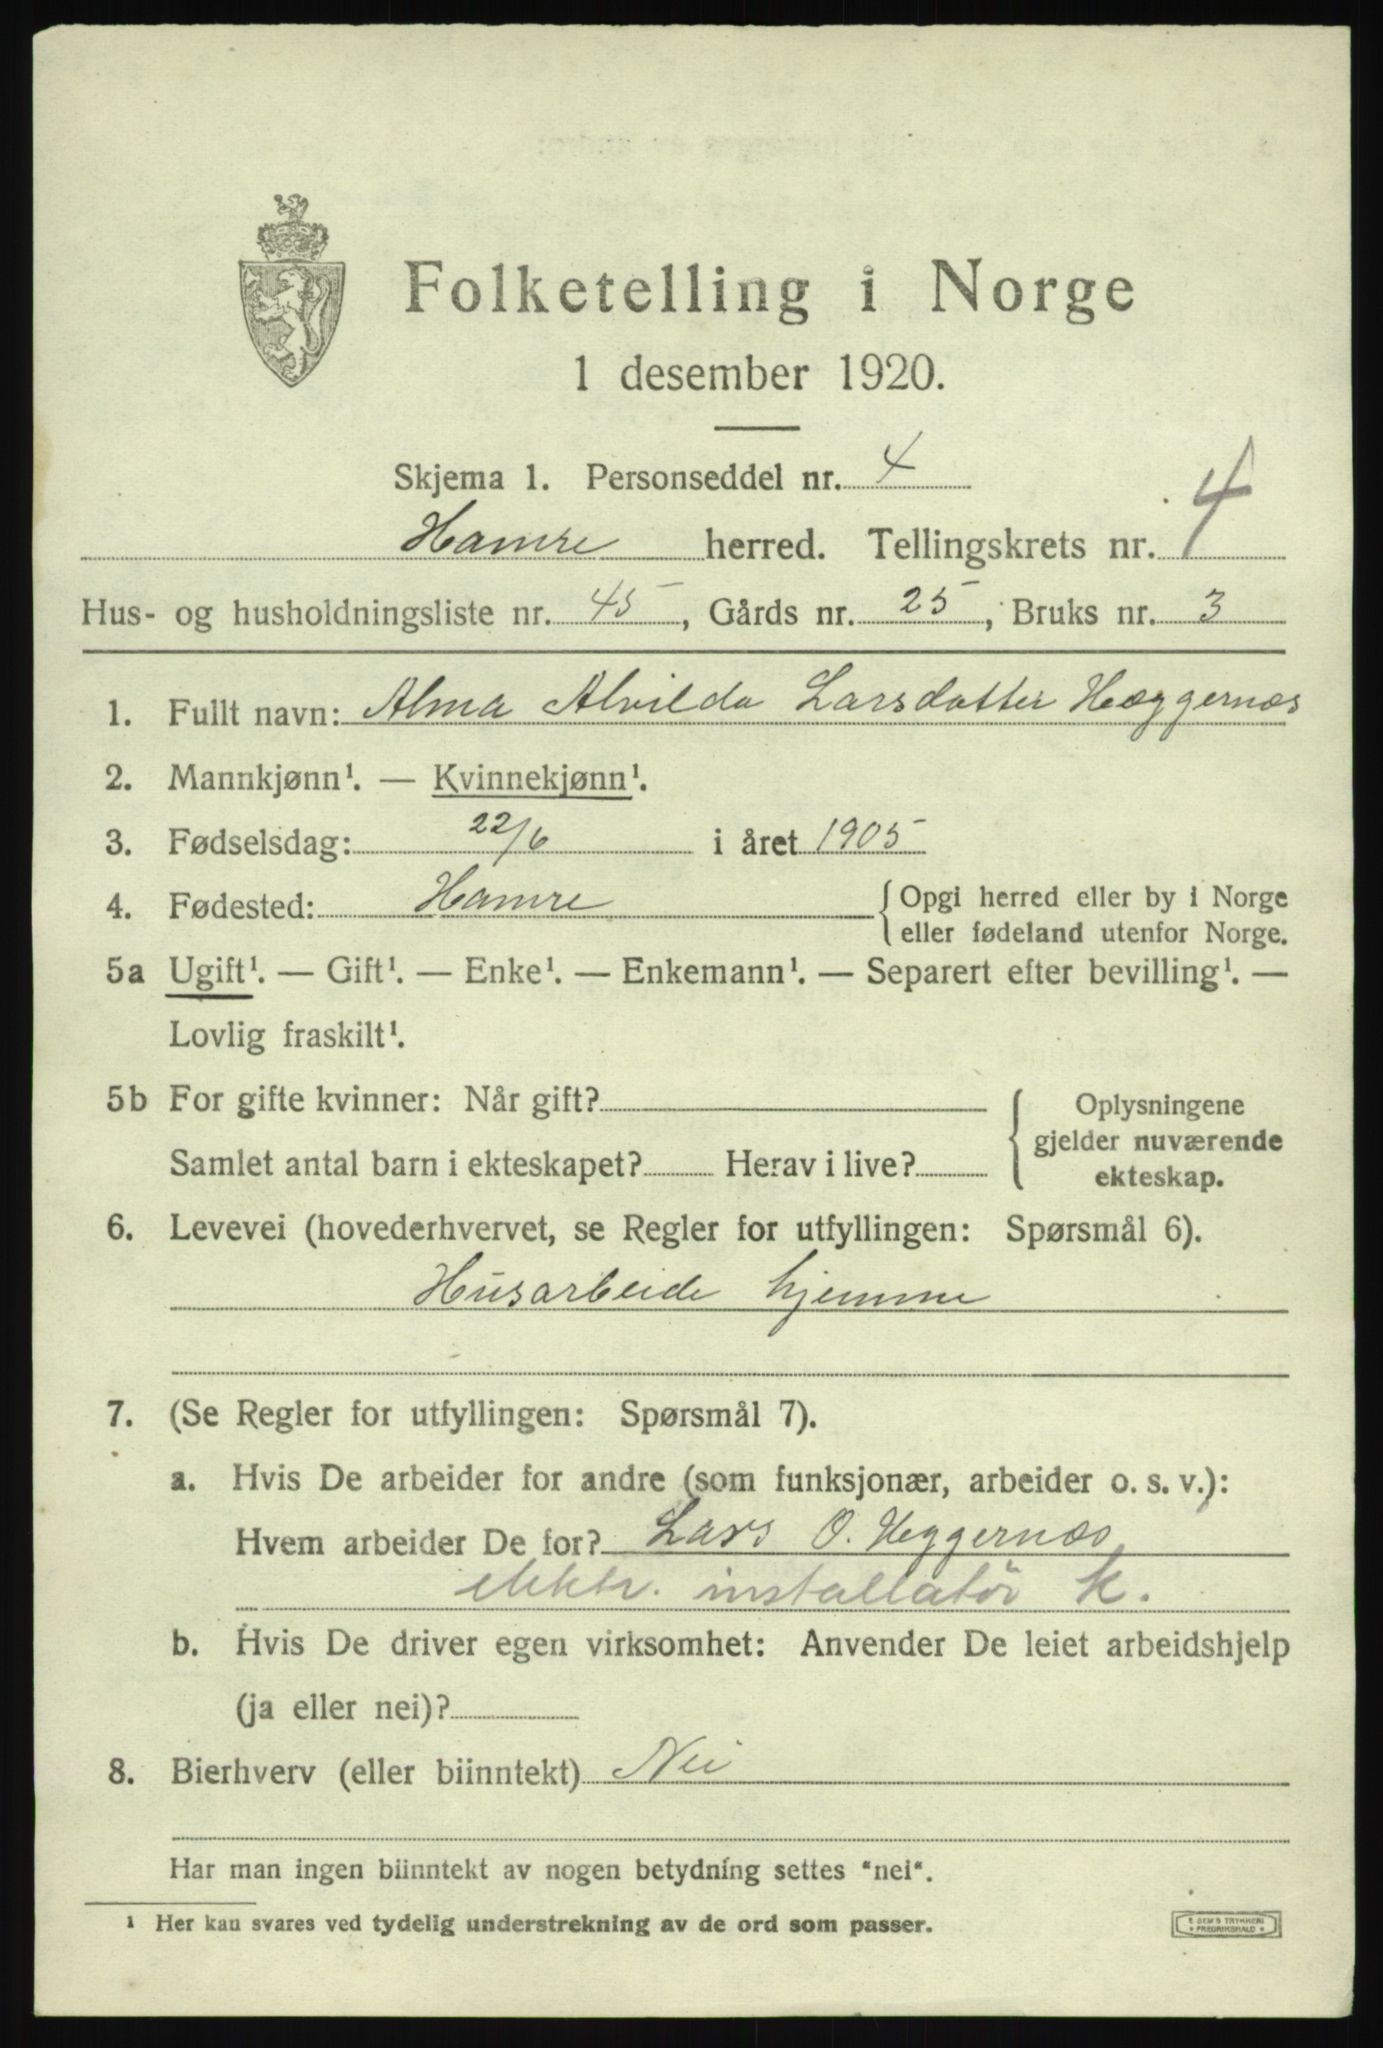 Folketelling i Norge
1 desember 1920.
Skjema 1. Personseddel nr. 4
Hamre herred. Tellingskrets nr. 4
Hus- og husholdningsliste nr. 45, Gårds nr. 25, Bruks nr. 3
1. Fullt navn: Alma Alvilda Larsdatter Hæggernæs
2. Mannkjønn¹. — Kvinnekjønn¹.
3. Fødselsdag: 22/6 i året 1905
4. Fødested: Hamre { Opgi herred eller by i Norge
eller fødeland utenfor Norge.
5a Ugift¹. — Gift¹. — Enke¹. — Enkemann¹. — Separert efter bevilling¹. —
Lovlig fraskilt¹.
5b For gifte kvinner: Når gift? { Oplysningene
gjelder nuværende
Samlet antal barn i ekteskapet? Herav i live?
ekteskap.
6. Levevei (hovederhvervet, se Regler for utfyllingen: Spørsmål 6).
Husarbeide hjemme
7. (Se Regler for utfyllingen: Spørsmål 7).
a. Hvis De arbeider for andre (som funksjonær, arbeider o. s. v.):
Hvem arbeider De for? Lars O. Heggernæs
elektr. installatør k.
b. Hvis De driver egen virksomhet: Anvender De leiet arbeidshjelp
(ja eller nei)?
8. Bierhverv (eller biinntekt) Nei
Har man ingen biinntekt av nogen betydning settes "nei".
¹ Her kan svares ved tydelig understrekning av de ord som passer.
E SEM'S TRYKKERI
FREDRIKSHALD